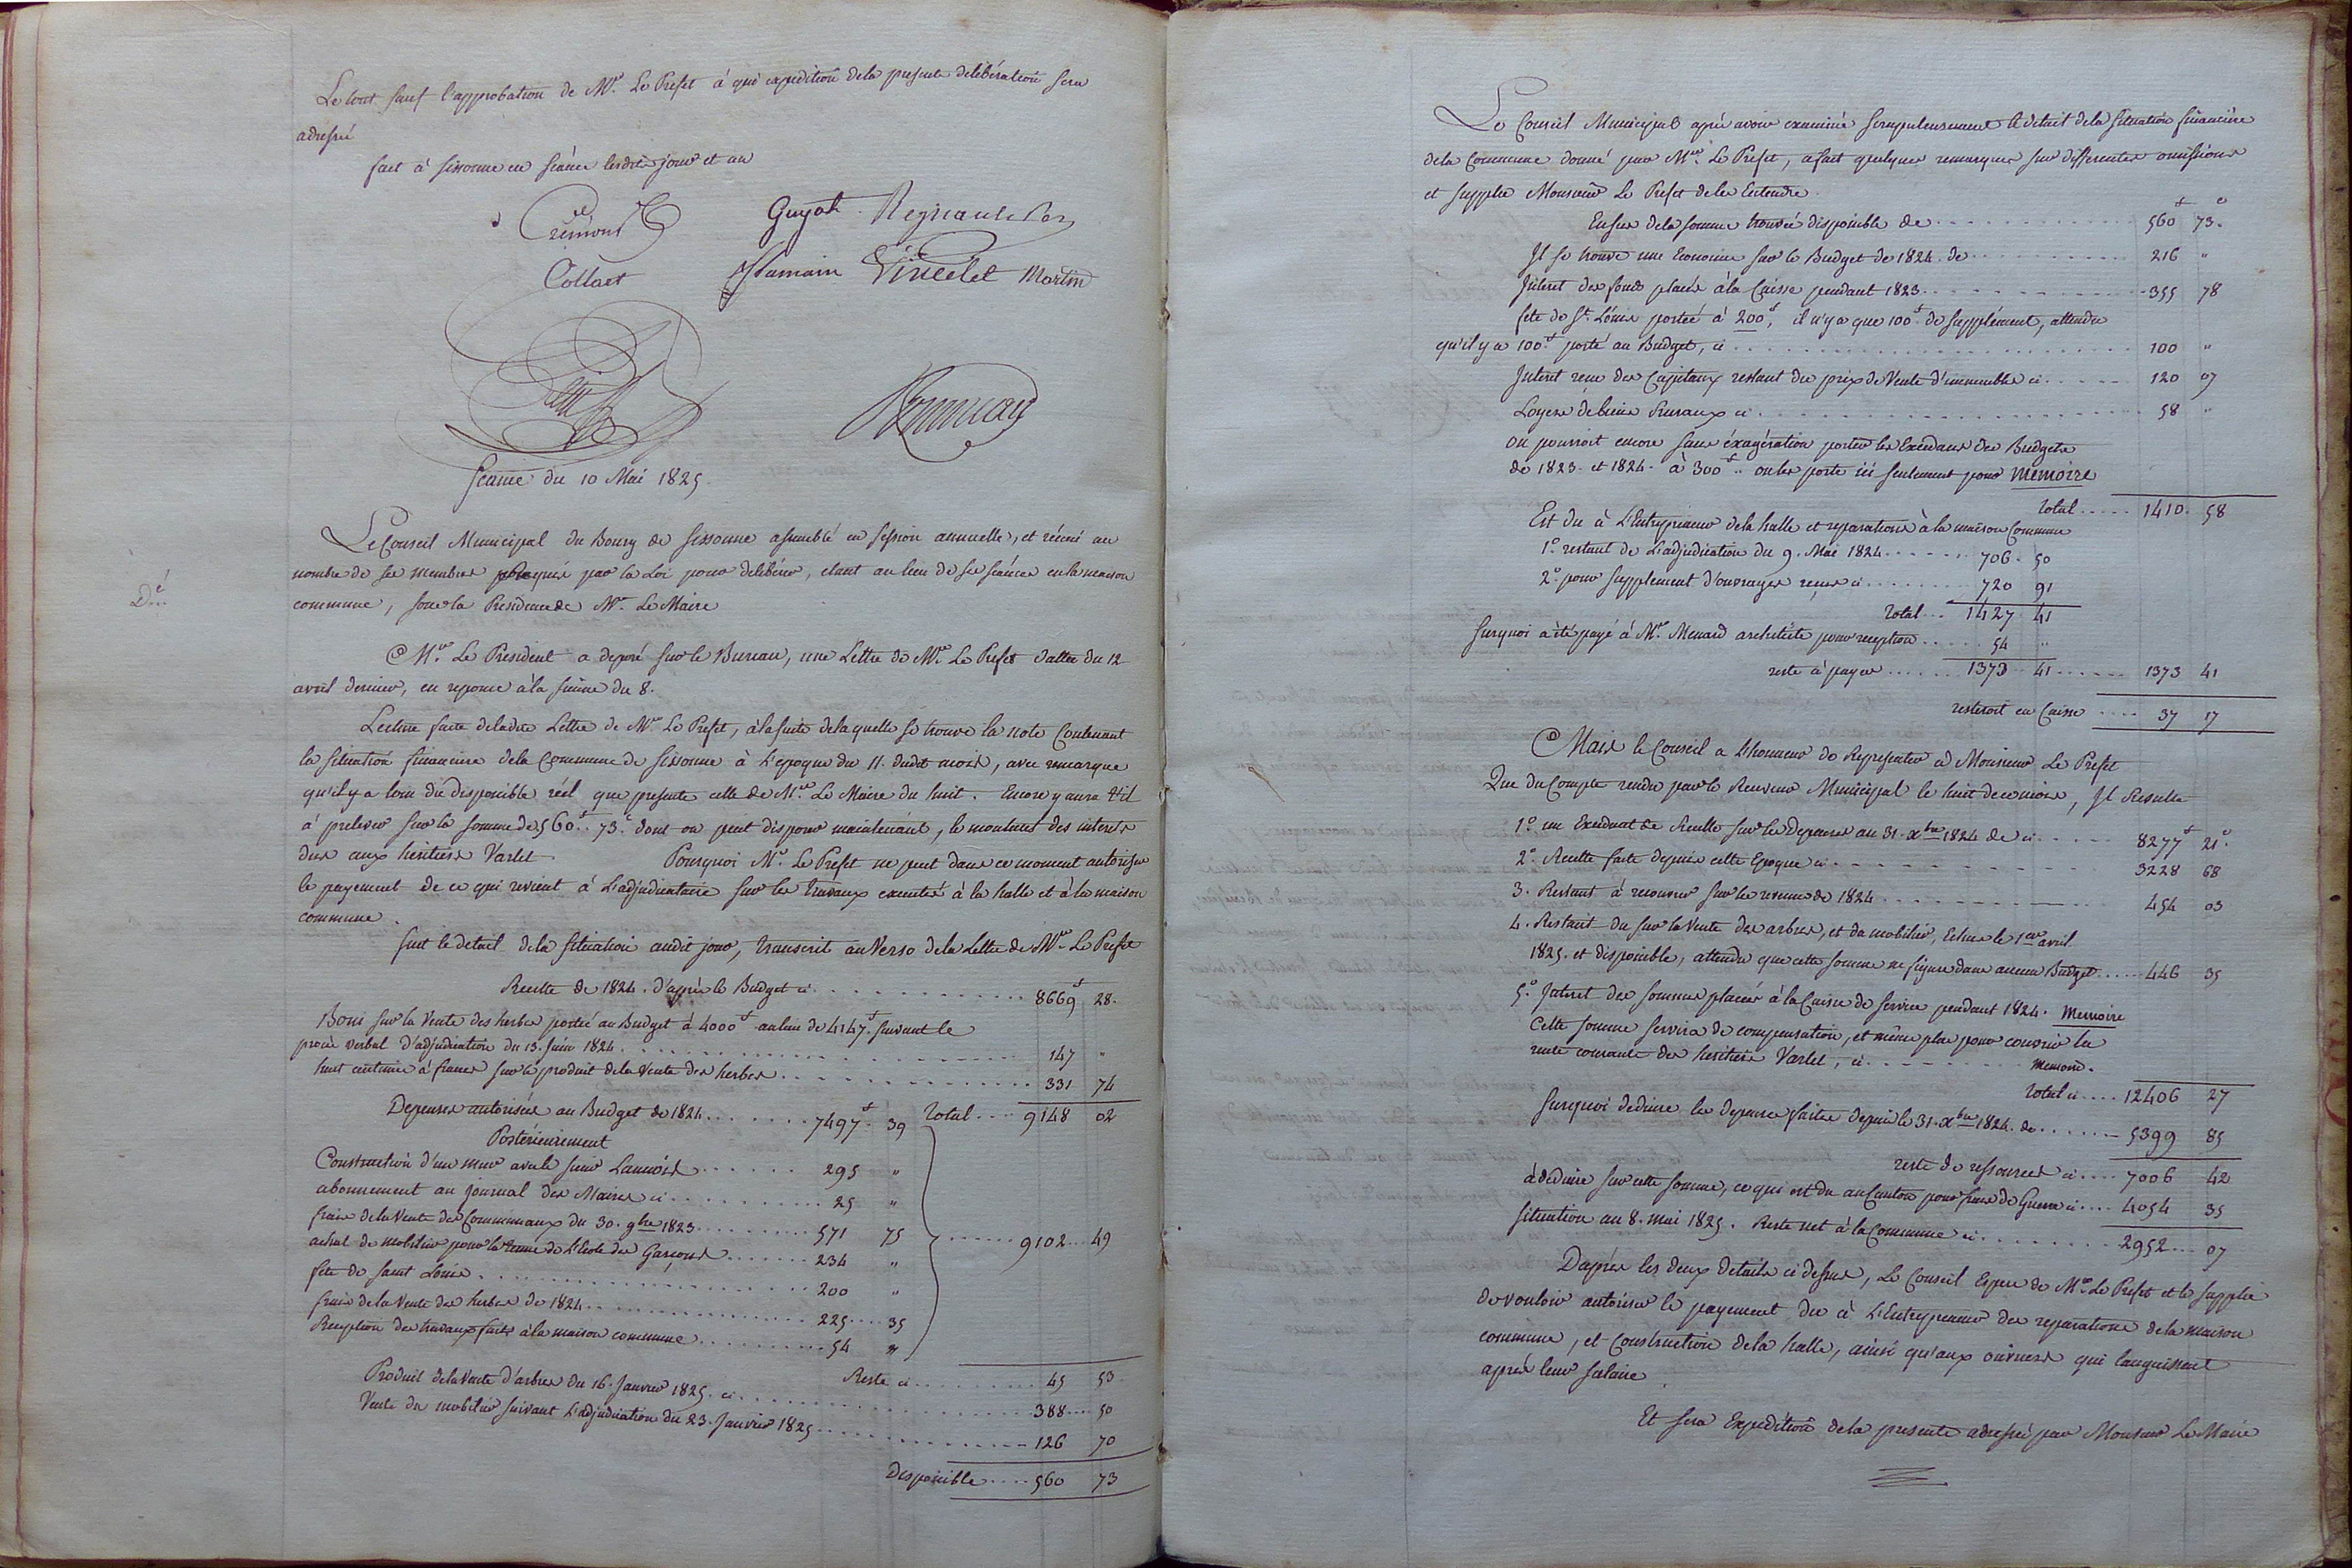 Le tout sauf l'approbation de Mr. Le Prefet à qui expedition dela presente délibération sera
adressée
fait à sissonne en séance lesdits jour et an
Cremont Guyot Regnault
Collart Hamain Vincelet Martin
Petit
Séance du 10 Mai 1825.
Le Conseil Municipal du Bourg de sissonne assemblé en session annuelle, et réuni au
nombre de ses membres requis par la Loi pour delibérer, étant au lieu de ses séances en la maison
commune, sous la Presidence de Mr. Le Maire
Dé
Mr. Le President a deposé sur le Bureau, une Lettre de Mr. Le Prefet dattée du 12
avril dernier, en reponse à la sienne du 8.
Lecture faite deladite Lettre de Mr. Le Prefet, à la suite delaquelle se trouve la note Contenant
la situation financiere dela Commune de sissonne à l'epoque du 11. dudit mois, avec remarque
qu'il y a loin du disponible réél que presente celle de Mr. Le Maire du huit. Encore y aura t'il
à prelever sur la somme de 560.f 73.c dont on peut disposer maintenant, le montant des interets
dus aux heritiers Varlet Pourquoi Mr. Le Prefet ne peut dans ce moment autoriser
le payement de ce qui revient à L'adjudicataire sur les travaux executés à la halle et à la maison
commune.
suit le detail dela situation audit jour, transcrit au Verso dela Lettre de Mr. Le Prefet
Recette de 1824. d'après le Budget ci . . . 8669f 28.
Boni sur la Vente des herbes portée au Budget à 4000f aulieu de 4147f suivant le
procès verbal d'adjudication du 13. Juin 1824 . . . 147 "
huit centimes à francs sur le produit dela Vente des herbes . . . 331 74
Total . . . 9148 02
Depenses autorisées au Budget de 1824 . . . 7497f. 39
Postérieurement
Construction d'un mur avec le sieur Lannois . . . 295 "
abonnement au Journal des Maires ci . . . 25 "
frais de la Vente des Communaux du 30. 9bre 1823 . . . 571 75
achat de mobilier pour la tenue de L'Ecole des Garçons . . . 234 " . . . 9102 . . . 49
fete de saint Louis . . . 200 "
frais de la Vente des herbes de 1824 . . . 225 . . . 35
Reception des travaux faits à la maison commune . . . 54 "
Reste ci . . . 45 53
Produit de la Vente d'arbres du 16. Janvier 1825. ci . . . 388 . . . 50
Vente du mobilier suivant L'adjudication du 23. Janvier 1825 . . . 126 70
Disponible . . . 560 73
Le Conseil Municipal après avoir examiné scrupuleusement le detail dela situation financiere
dela Commune donné par Mr. Le Prefet, a fait quelques remarques sur differentes omissions
et supplie Monsieur Le Prefet deles Entendre
Ensus dela somme trouvée disponible de . . . 560f 73.c
Il se trouve une Economie sur le Budget de 1824. de . . . 216 "
Interet des fonds placés à la Caisse pendant 1823 . . . 355 78
fete de St. Louis portée à 200f, il n'y a que 100f de supplément, attendu
qu'il y a 100f porté au Budget, ci . . . 100 "
Interet reçu des Capitaux restant du prix de Vente d'immeubles ci . . . 120 07
Loyers de biens Ruraux ci . . . 58 "
on pourroit encore sans éxagération porter les Excedans des Budgets
de 1823. et 1824. à 300f. on les porte ici seulement pour Memoire
Total . . . 1410. 58
Est du à L'Entrepreneur dela halle et reparations à la maison Commune
1.o restant de L'adjudication du 9. Mai 1824 . . . 706. 50
2.o pour supplement d'ouvrages reçus ci . . . 720 91
Total . . . 1427 41
surquoi a été payé à Mr. Menard architecte pour reception . . . 54 "
reste à payer . . . 1373 41 . . . 1373 41
resteroit en Caisse . . . 37 17
Mais le Conseil a L'honneur de Representer à Monsieur Le Prefet
Que du Compte rendu par le Receveur Municipal le huit de ce mois, Il Resulte
1.o un Excedent de Recette sur les Depenses au 31. Xbre 1824 de ci . . . 8277f 21c.
2.o Recette faite depuis cette Epoque ci . . . 3228 68
3. Restant à recouvrer sur les revenus de 1824 . . . 454 03
4. Restant du sur la Vente des arbres, et du mobilier, Echue le 1er avril
1825. et disponible, attendu que cette somme ne figure dans aucun Budget . . . 446 35
5.o Interet des sommes placées à la Caisse de service pendant 1824. Memoire
Cette somme servira de compensation, et même plus pour couvrir la
rente courante des heritiers Varlet, ci . . . Memoire.
Total ci . . . 12406 27
surquoi deduire les depenses faites depuis le 31. Xbre 1824. de . . . 5399 85
reste de ressources ci . . . 7006 42
à deduire sur cette somme, ce qui est du au Canton pour frais de Guerre ci . . . 4054 35
situation au 8. mai 1825. Reste net à la Commune ci . . . 2952 . . . 07
D'après les deux details ci dessus, Le Conseil Espere de Mr. Le Prefet et le supplie
de vouloir autoriser le payement du à L'Entrepreneur des reparations dela maison
commune, et Construction dela halle, ainsi qu'aux ouvriers qui languissent
après leur salaire.
Et sera Expédition dela presente adressée par Monsieur Le Maire